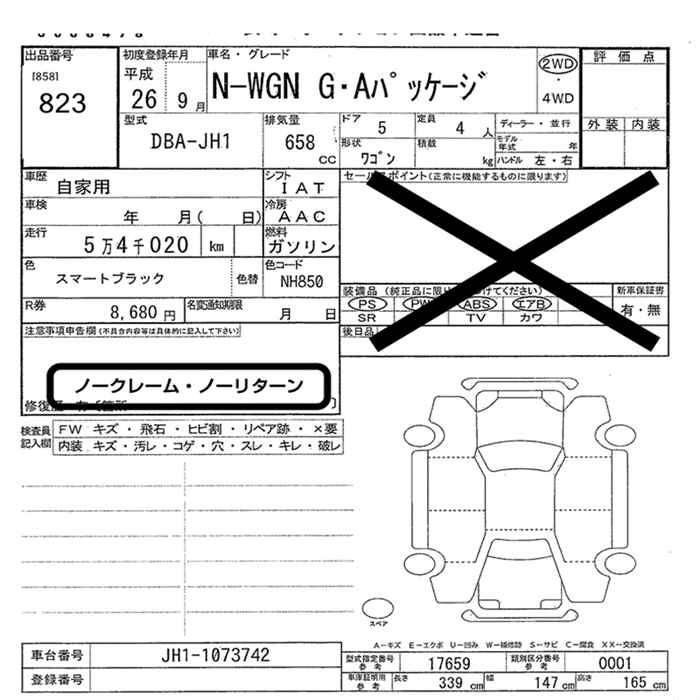 出品番号
[858]
823
初度登録年月
平成
26 9 月
車名・グレード
N-WGN G・Aパッケージ
2WD
・
4WD
評価点
外装 内装
型式
DBA-JH1
排気量
658
CC
ドア 5
定員 4 人
ディーラー・並行
モデル年式 年
形状 ワゴン
積載 kg
ハンドル 左・右
車歴
自家用
シフト
IAT
車検
年 月( 日)
冷房
AAC
走行
5万4千020 km
燃料
ガソリン
色
スマートブラック
色替
色コード
NH850
R券
8,680 円
名変通知期限
月 日
セールスポイント(正常に機能するものに限ります)
装備品 (純正品に限り 付けてください)
新車保証書
PS PW ABS エアB
有・無
SR TV カワ
後日品
注意事項申告欄(不具合内容等は具体的に記入して下さい)
ノークレーム・ノーリターン
検査員
記入欄
FW キズ・飛石・ヒビ割・リペア跡・×要
内装 キズ・汚レ・コゲ・穴・スレ・キレ・破レ
スペア
A-キズ E-エクボ U-凹み W-補修跡 S-サビ C-腐食 XX-交換済
車台番号 JH1-1073742
登録番号
型式指定番号 参考 17659
類別区分番号 参考 0001
車庫証明用 参考 長さ 339 cm 幅 147 cm 高さ 165 cm